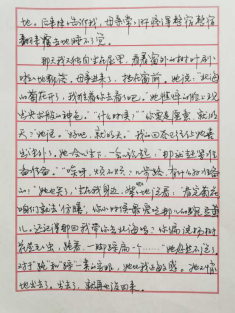 她。后来妹妹告诉我，母亲常常肝疼得整宿整宿
翻来覆去地睡不了觉。
那天我又独自坐在屋里，看着窗外的树叶刷
刷啦啦地飘落。母亲进来了，挡在窗前。她说：“北海
的菊花开了，我推着你去看看吧。”她憔悴的脸上现
出央求般的神色。“什么时候？”“你要是愿意，就明
天？”她说。“好吧，就明天。”我的回答已经让她喜
出望外了。她一会坐下，一会站起，“那就赶紧准
备准备。”“哎呀，烦不烦，几步路，有什么好准备
的！”她也笑了，坐在我身边，絮絮叨叨地说着：“看完菊花，
咱们就去‘仿膳’，你小时候最爱吃那儿的豌豆黄
儿。还记得那回我带你去北海吗？你偏说那杨树
花是毛虫，跑着，一脚踩扁一个……”她忽然不说了。
对于“跑”和“踩”一类的字眼，她比我还敏感。她又悄悄
地出去了。她出去了，就再也没回来。